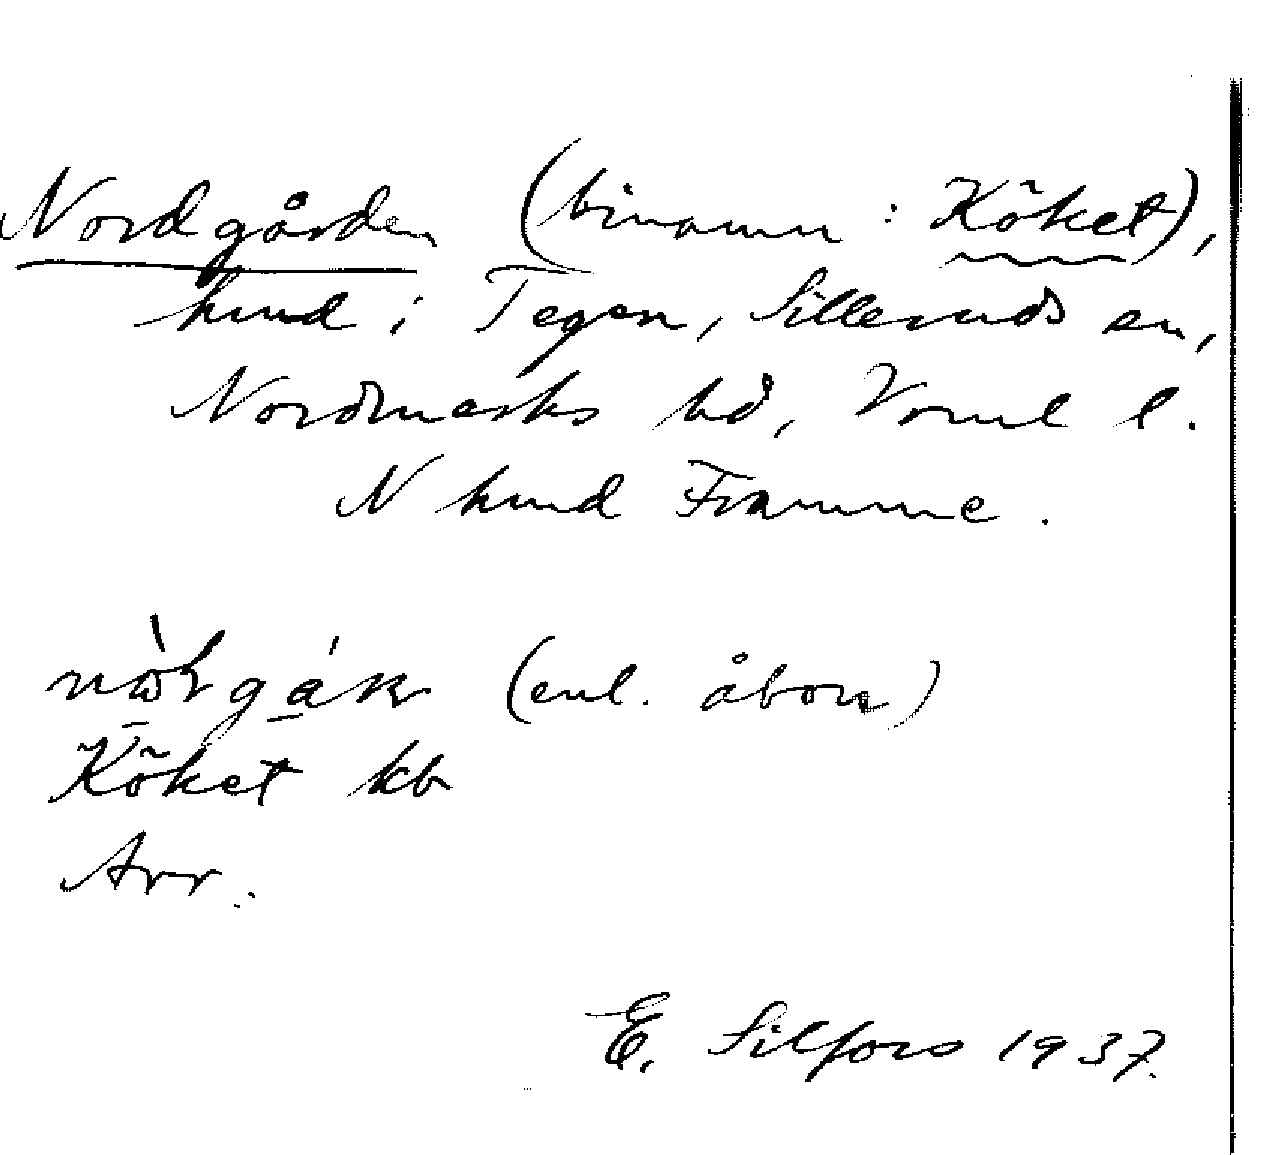 Nordgården (binamn: Köket),
hmd i Tegen, Silleruds sn,
Nordmarks hd, Vrml l.
N hmd Framme.
(enl. åbon)
Köket kb
Arr.
E. Silfors 1937.